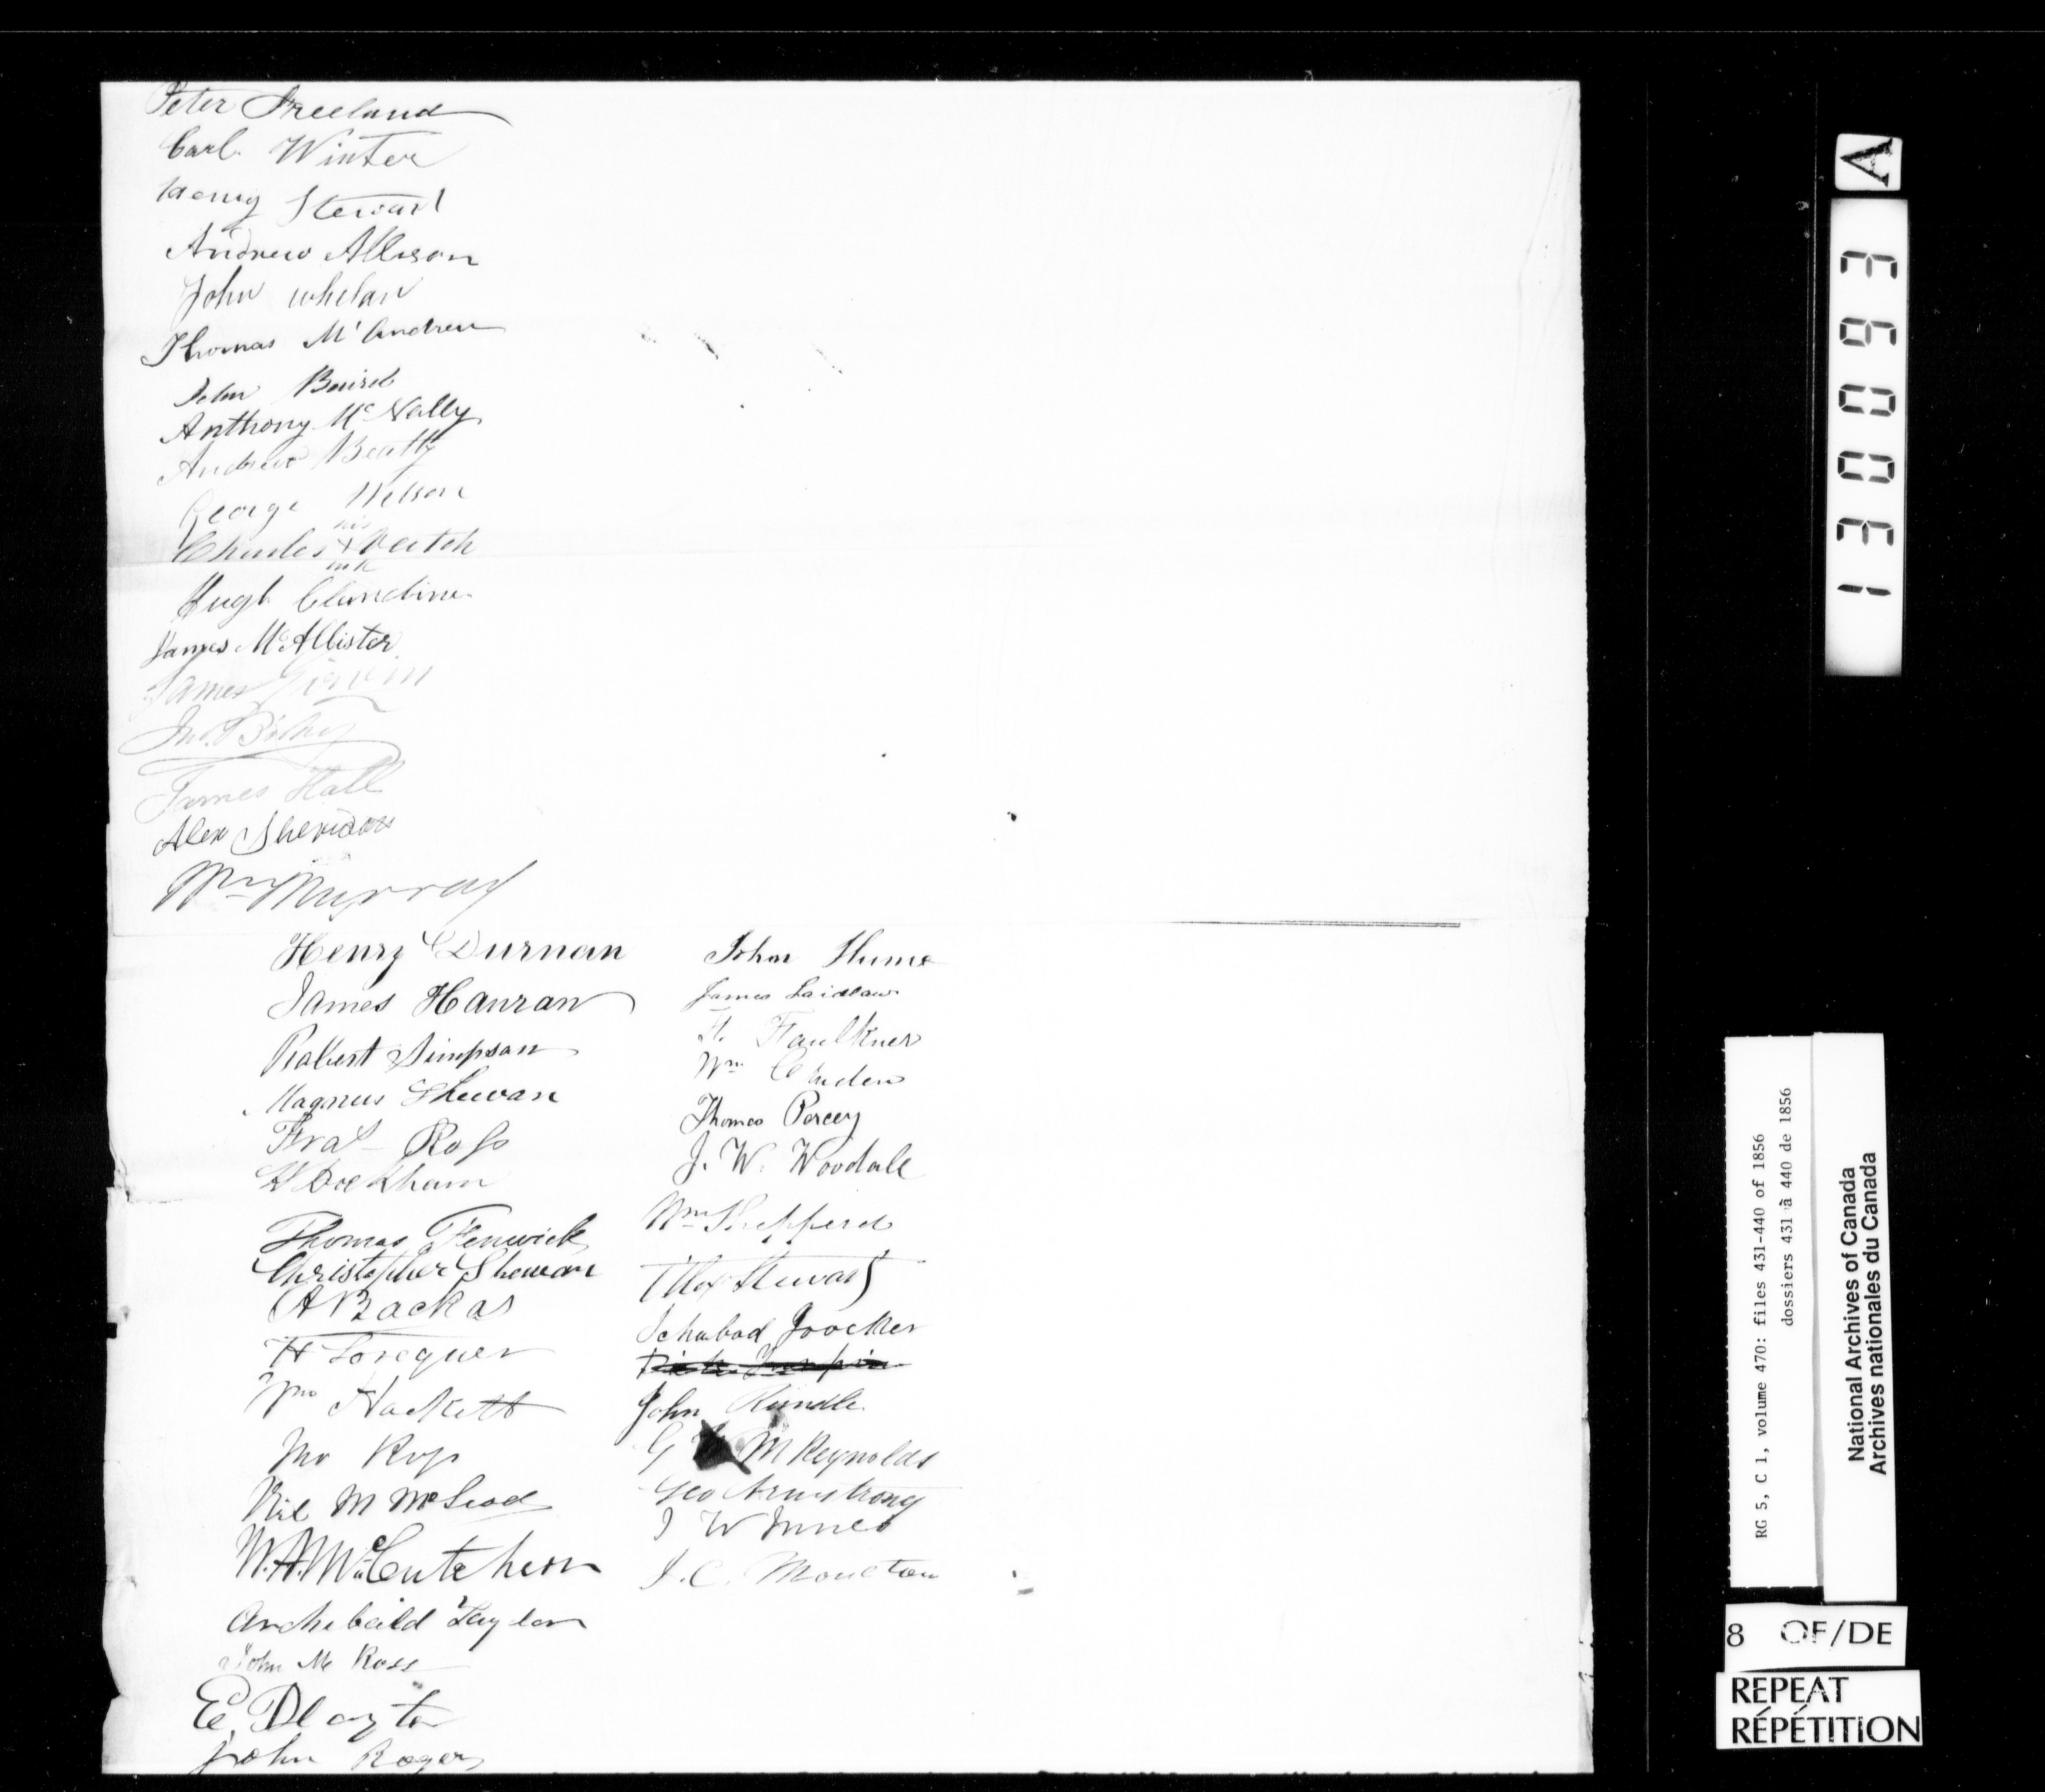 Peter Freeland
Carl Winter
Henry Stewart
Andrew Allison
John Whelan
Thomas M'Andrew
John Baird
Anthony McNally
Andrew Beatty
George Nelson
his
Charles X Veitch
mk
Hugh Clendine
James McAllister
James Girvin
Jno.
James Hall
Alex Sheridan
Wm Murray
Henry Durnan
James Hanran
Robert Simpson
Magnus Shewan
Fras Ross
Thomas Fenwick
Christopher Shewan
A Backas
H
Wm Hackett
Jno Ross
McLeod
W. A. McCutcheon
Archibald Taylor
John Mc Ross
E.
John Rogers
John Hume
James Laidlaw
Faulkner
Wm
Thomas Percey
J. W. Woodall
Wm Shepperd
Alex Stewart
John Rundle
G M Reynolds
Geo Armstrong
J W Innes
J. C. Moulton
A
130063
RG 5, C 1, volume 470: files 431-440 of 1856
dossiers 431 à 440 de 1856
National Archives of Canada
Archives nationales du Canada
8 OF/DE
REPEAT
RÉPÉTITION